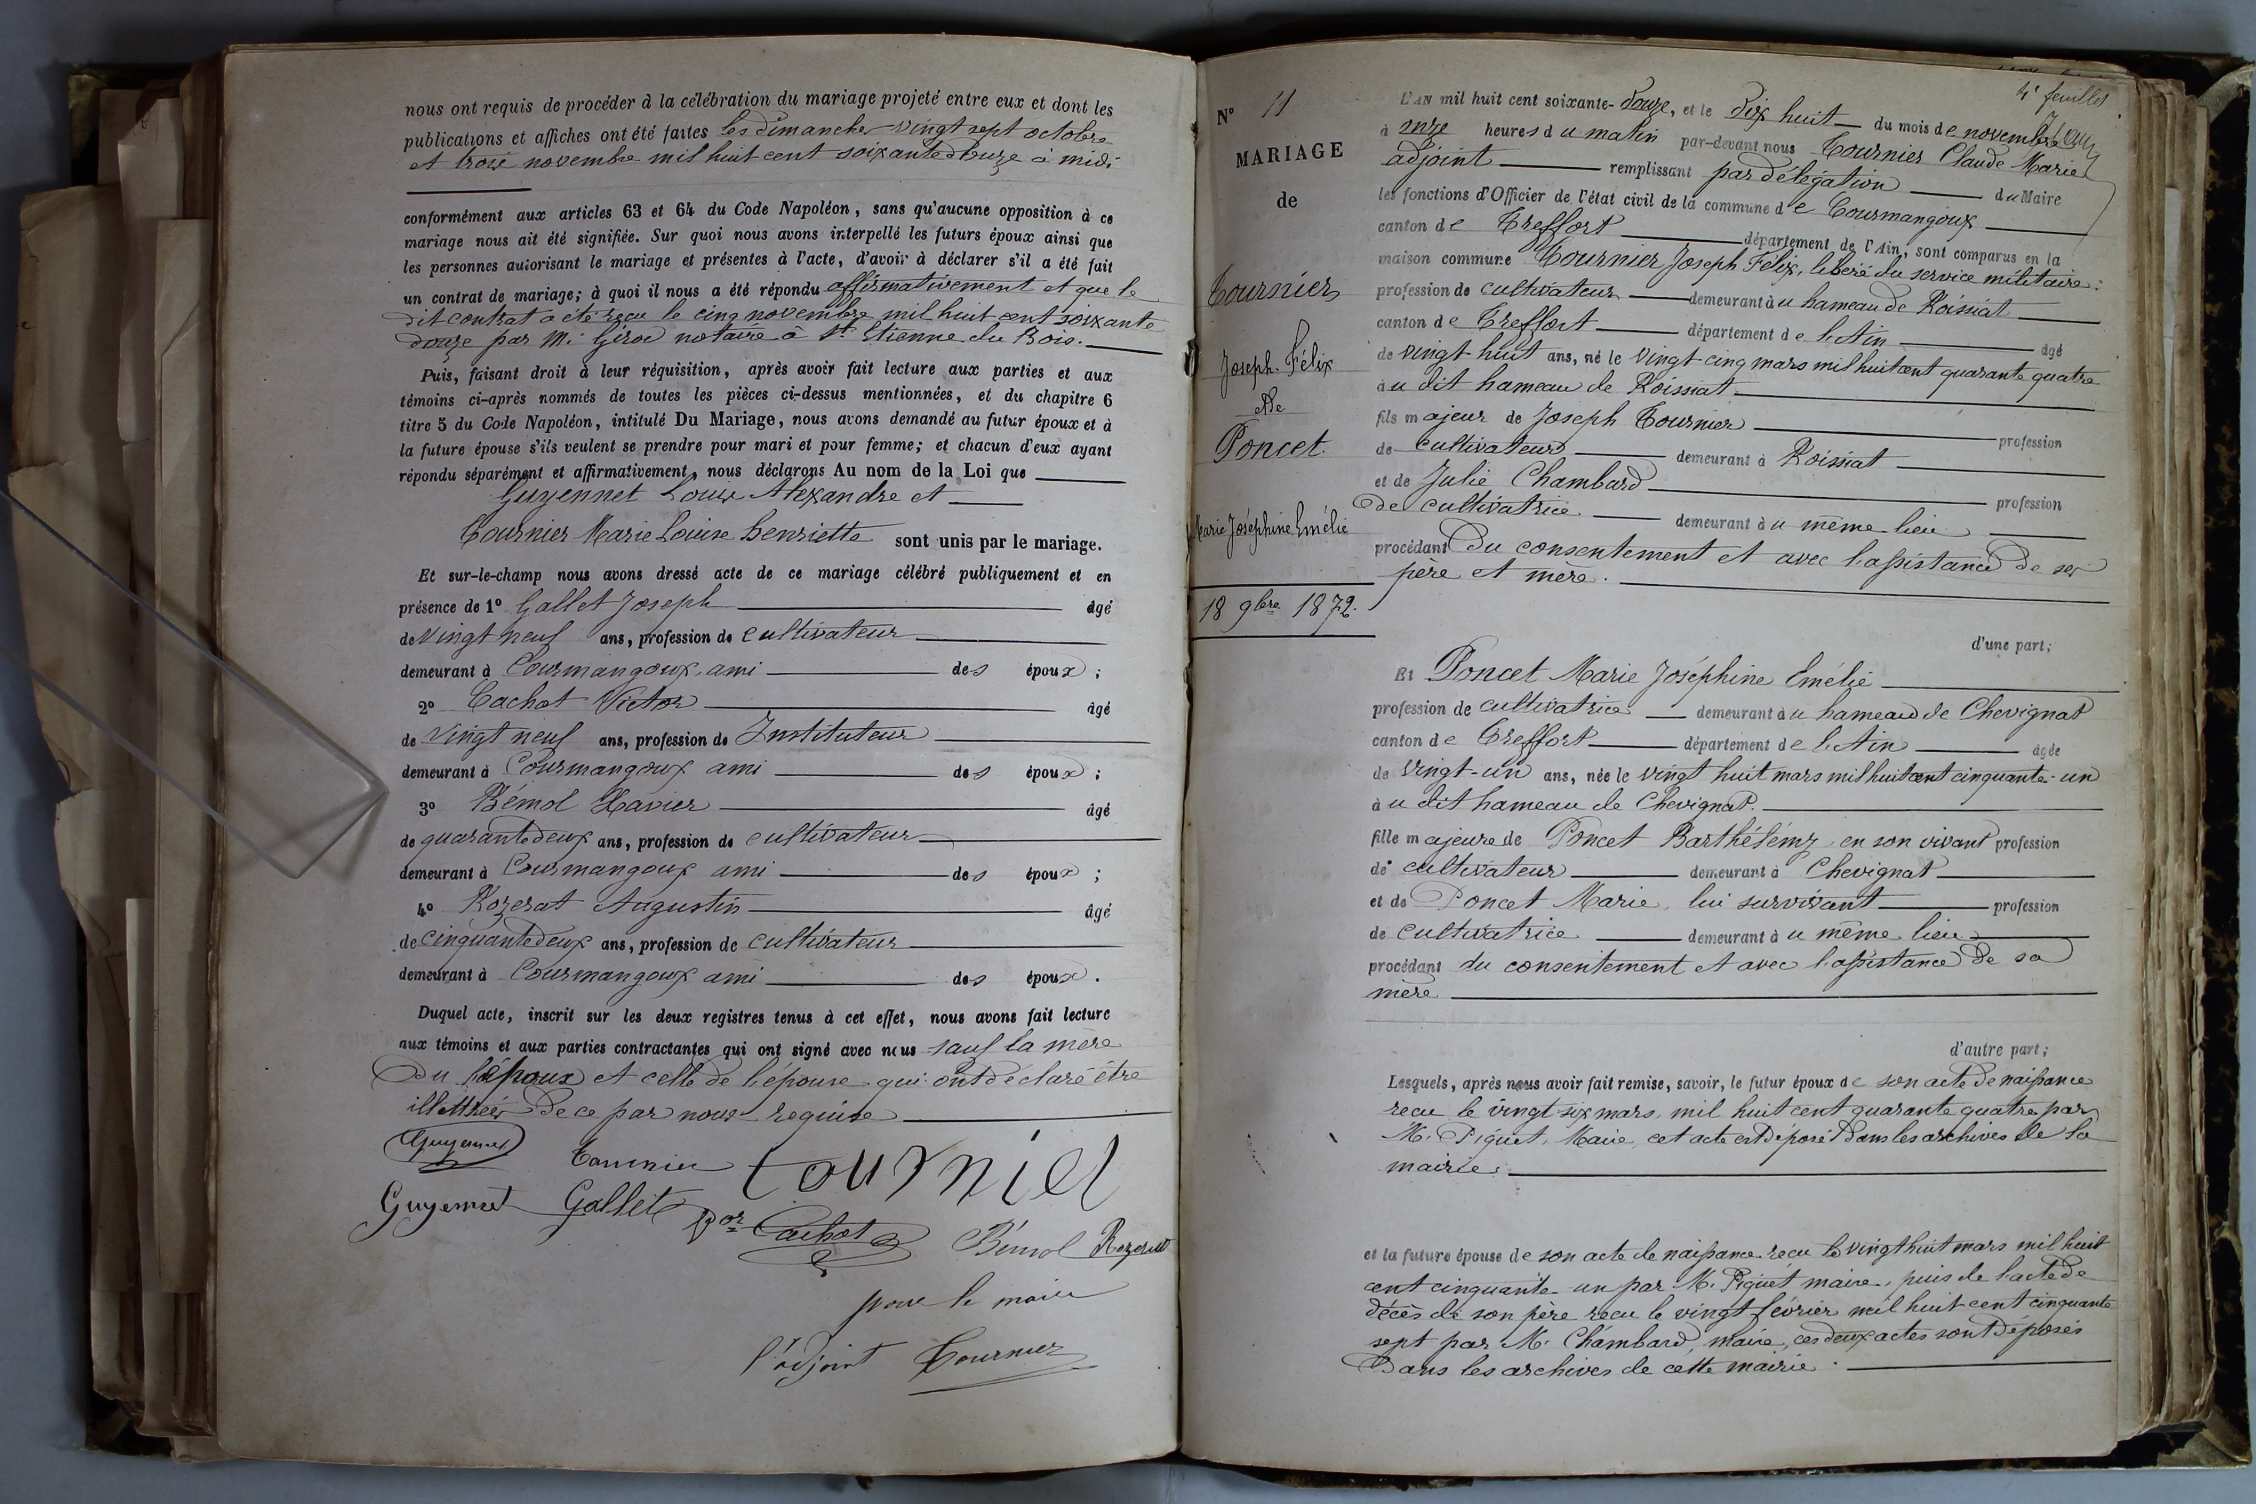 nous ont requis de procéder à la célébration du mariage projeté entre eux et dont les
publications et affiches ont été faites les dimanches vingt sept octobre
et trois novembre mil huit cent soixante douze à midi
conformément aux articles 63 et 64 du Code Napoléon, sans qu'aucune opposition à ce
mariage nous ait été signifiée. Sur quoi nous avons interpellé les futurs époux ainsi que
les personnes autorisant le mariage et présentes à l'acte, d'avoir à déclarer s'il a été fait
un contrat de mariage; à quoi il nous a été répondu affirmativement et que le
dit contrat a été reçu le cinq novembre mil huit cent soixante
douze par Me Girod notaire à St Etienne du Bois.
Puis, faisant droit à leur réquisition, après avoir fait lecture aux parties et aux
témoins ci-après nommés de toutes les pièces ci-dessus mentionnées, et du chapitre 6
titre 5 du Code Napoléon, intitulé Du Mariage, nous avons demandé au futur époux et à
la future épouse s'ils veulent se prendre pour mari et pour femme; et chacun d'eux ayant
répondu séparément et affirmativement, nous déclarons Au nom de la Loi que
Guyennet Louis Alexandre et
Tournier Marie Louise henriette sont unis par le mariage.
Et sur-le-champ nous avons dressé acte de ce mariage célébré publiquement et en
présence de 1° Gallet Joseph âgé
de vingt neuf ans, profession de cultivateur
demeurant à Courmangoux, ami des époux ;
2° Cachot Victor âgé
de vingt neuf ans, profession de Instituteur
demeurant à Courmangoux ami des époux ;
3° Bémol Xavier âgé
de quarante deux ans, profession de cultivateur
demeurant à Courmangoux ami des époux ;
4° Rozerat Augustin âgé
de cinquante deux ans, profession de cultivateur
demeurant à Courmangoux ami des époux .
Duquel acte, inscrit sur les deux registres tenus à cet effet, nous avons fait lecture
aux témoins et aux parties contractantes qui ont signé avec nous sauf la mère
du l'époux et celle de l'épouse qui ont déclaré être
illettrées de ce par nous requise
Guyennet Tournier Tournier
Guyennet Gallet Vor Cachot Bémol Rozerat
pour le maire
l'adjoint Tournier
4e feuillet
N° 11
MARIAGE
de
Tournier
Joseph Félix
et de
Poncet
Marie Joséphine Emélie
18 9bre 1872.
L'AN mil huit cent soixante-douze, et le dix huit du mois de novembre
à onze heures du matin par-devant nous Tournier Claude Marie
adjoint remplissant par délégation du Maire
les fonctions d'Officier de l'état civil de la commune de Courmangoux
canton de Treffort département de l'Ain, sont comparus en la
maison commune Tournier Joseph Félix, libéré du service militaire:
profession de cultivateur demeurant au hameau de Roissiat
canton de Treffort département de l'Ain âgé
de vingt huit ans, né le vingt-cinq mars mil huit cent quarante quatre
au dit hameau de Roissiat
fils majeur de Joseph Tournier profession
de cultivateur demeurant à Roissiat
et de Julie Chambard profession
de cultivatrice demeurant au même lieu
procédant du consentement et avec l'assistance de ses
père et mère.
d'une part;
Et Poncet Marie Joséphine Emélie
profession de cultivatrice demeurant au hameau de Chevignat
canton de Treffort département de l'Ain âgée
de vingt-un ans, née le vingt huit mars mil huit cent cinquante-un
au dit hameau de Chevignat.
fille majeure de Poncet Barthélémy en son vivant profession
de cultivateur demeurant à Chevignat
et de Poncet Marie, lui survivant profession
de cultivatrice demeurant au même lieu
procédant du consentement et avec l'assistance de sa
mère
d'autre part;
Lesquels, après nous avoir fait remise, savoir, le futur époux de son acte de naissance
reçu le vingt-six mars mil huit cent quarante quatre par
M. Piquet, Maire, cet acte est déposé dans les archives de la
mairie.
et la future épouse de son acte de naissance reçu le vingt huit mars mil huit
cent cinquante-un par M. Piquet maire, puis de l'acte de
décès de son père reçu le vingt février mil huit cent cinquante
sept par M. Chambard, maire, ces deux actes sont déposés
dans les archives de cette mairie.